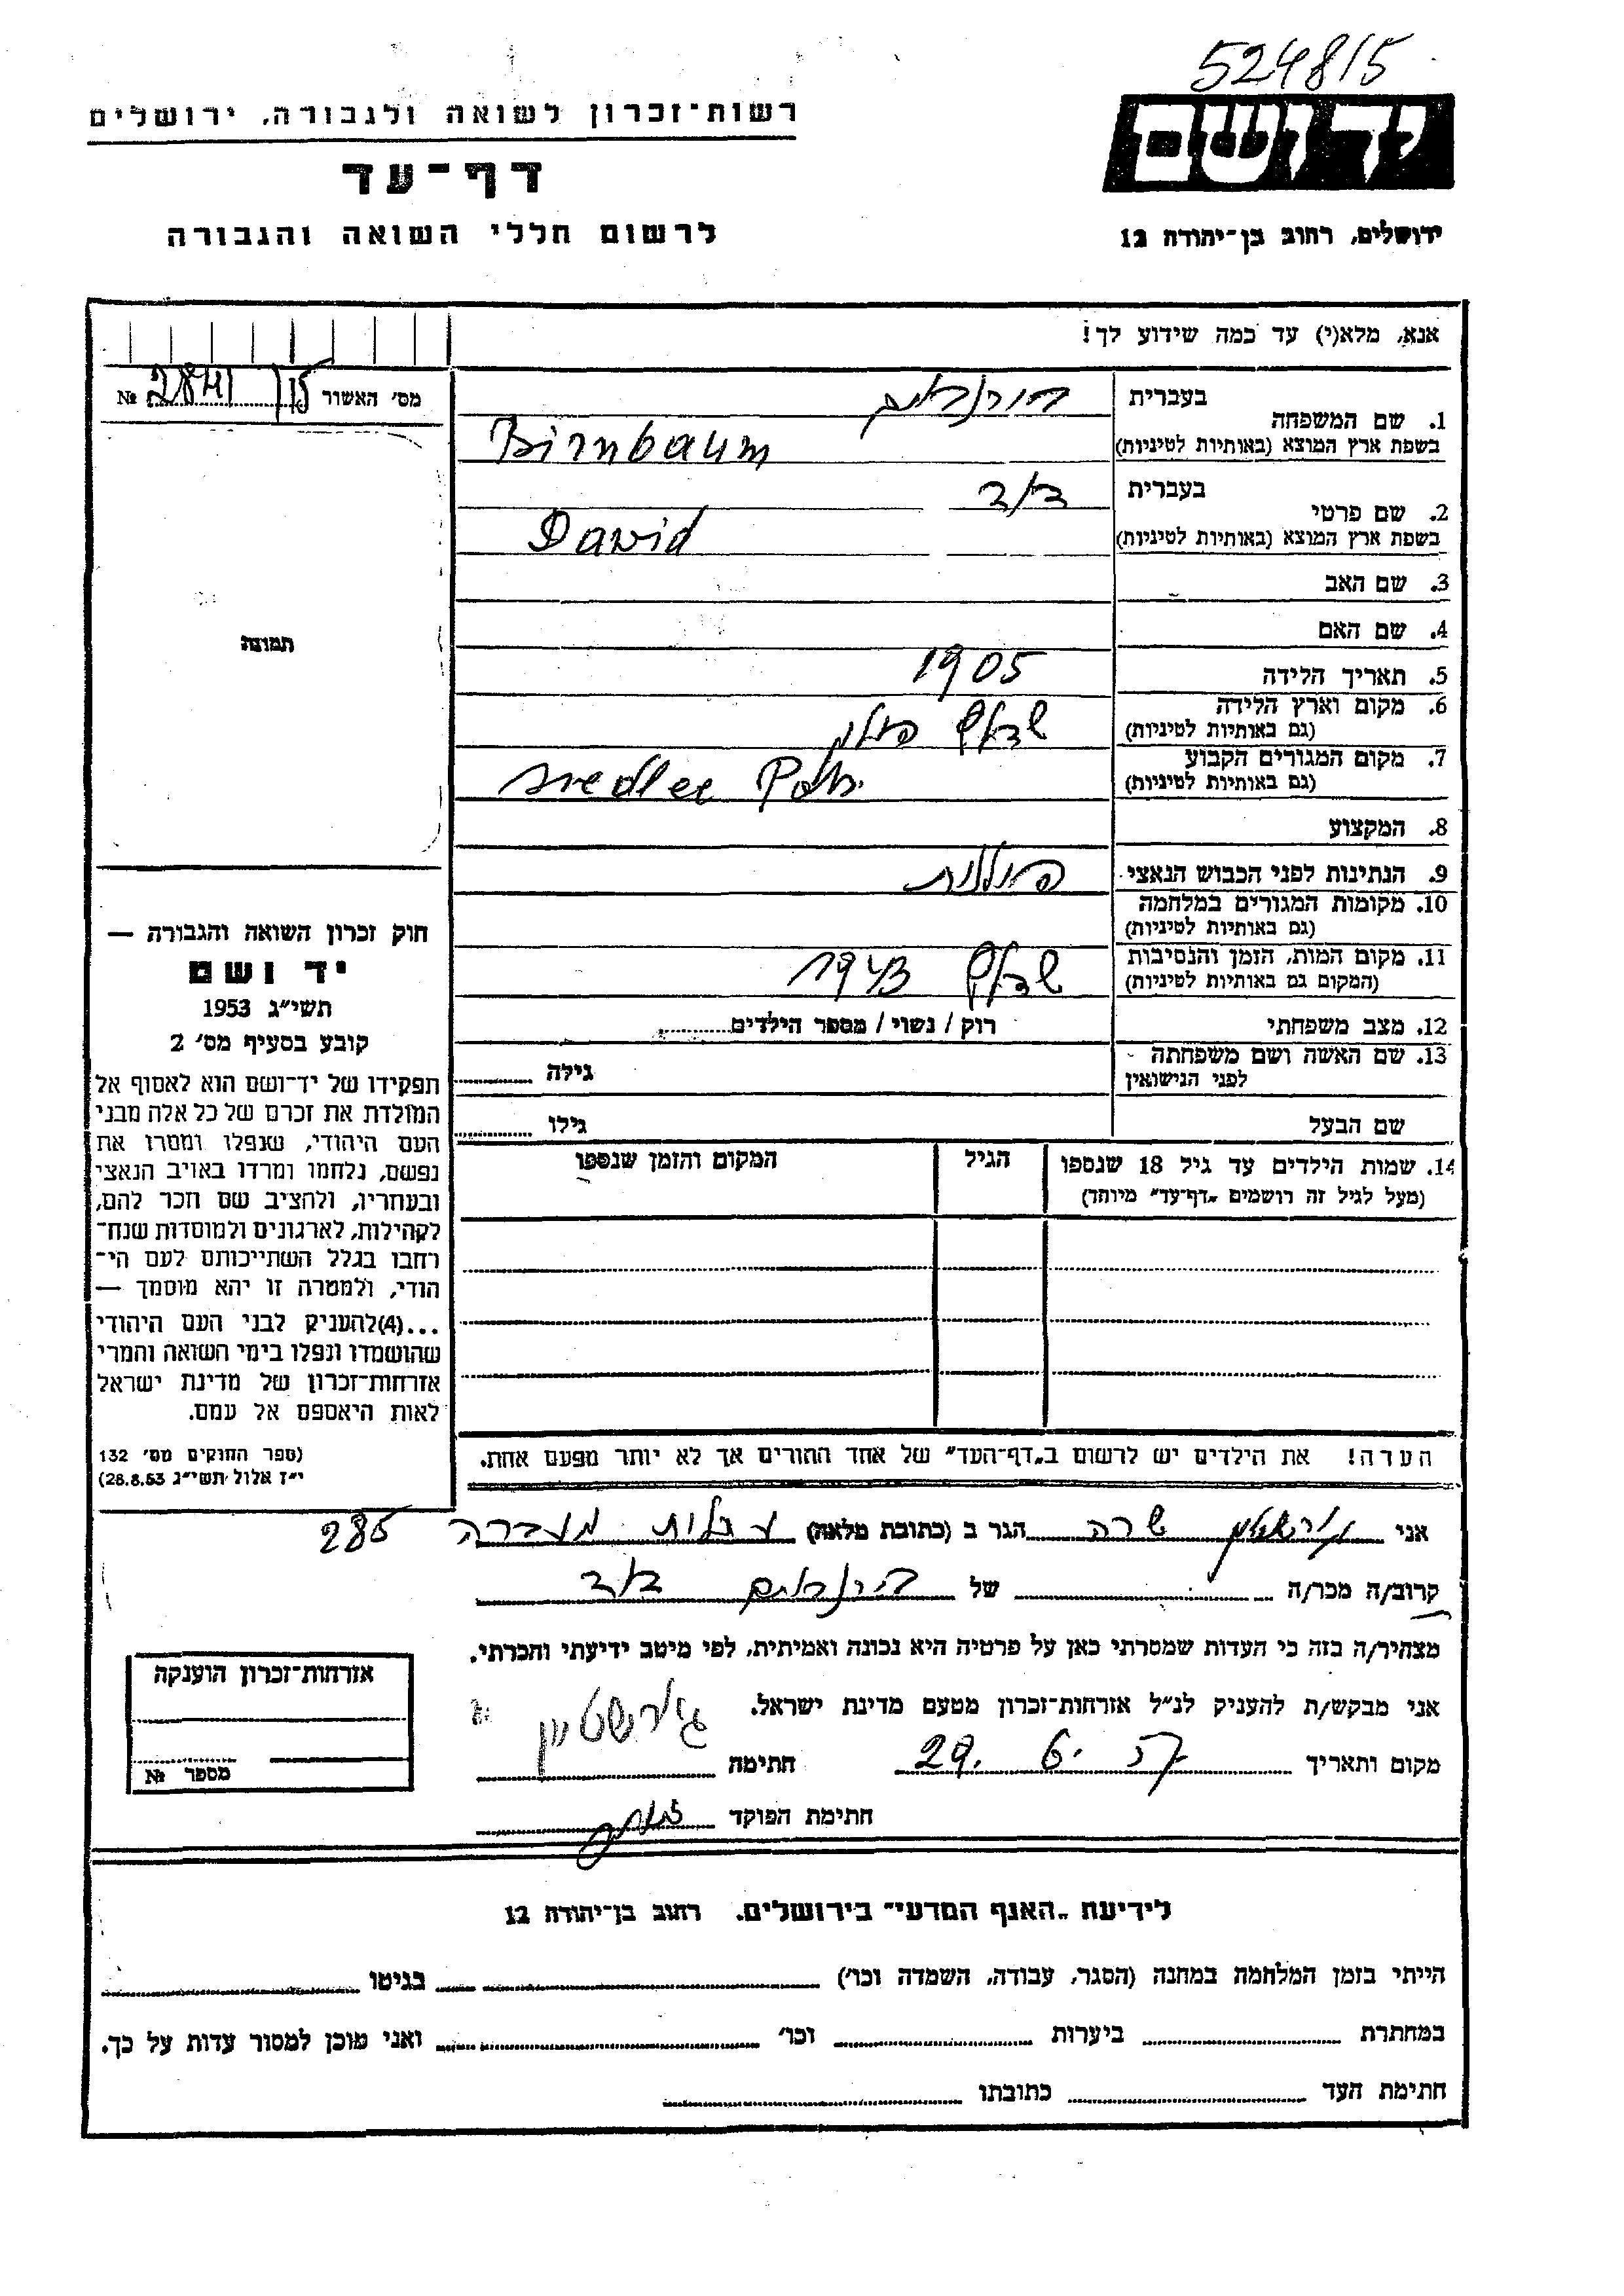 524815
רשות־זכרון לשואה ולגבורה, ירושלים
יד ושם
דף־עד
לרשום חללי השואה והגבורה
ירושלים, רחוב בן־יהודה 12
אנא, מלא(י) עד כמה שידוע לך!
מס' האשור № 2841
1. שם המשפחה
בעברית בירנבאום
בשפת ארץ המוצא (באותיות לטיניות) Birnbaum
2. שם פרטי
בעברית דוד
בשפת ארץ המוצא (באותיות לטיניות) Dawid
3. שם האב
4. שם האם
5. תאריך הלידה 1905
6. מקום וארץ הלידה
(גם באותיות לטיניות) שדלץ פולין
7. מקום המגורים הקבוע
(גם באותיות לטיניות)
8. המקצוע
9. הנתינות לפני הכבוש הנאצי פולנית
10. מקומות המגורים במלחמה
(גם באותיות לטיניות)
11. מקום המות, הזמן והנסיבות
(המקום גם באותיות לטיניות) שדלץ 1943
12. מצב משפחתי רוק / נשוי / מספר הילדים
13. שם האשה ושם משפחתה
לפני הנישואין גילה
שם הבעל גילו
14. שמות הילדים עד גיל 18 שנספו
(מעל לגיל זה רושמים „דף־עד" מיוחד)
הגיל
המקום והזמן שנספו
תמונה
חוק זכרון השואה והגבורה —
יד ושם
תשי"ג 1953
קובע בסעיף מס' 2
תפקידו של יד־ושם הוא לאסוף אל
המולדת את זכרם של כל אלה מבני
העם היהודי, שנפלו ומסרו את
נפשם, נלחמו ומרדו באויב הנאצי
ובעוזריו, ולהציב שם וזכר להם,
לקהילות, לארגונים ולמוסדות שנח־
רבו בגלל השתייכותם לעם הי־
הודי, ולמטרה זו יהא מוסמך —
...(4) להעניק לבני העם היהודי
שהושמדו ונפלו בימי השואה והמרי
אזרחות־זכרון של מדינת ישראל
לאות היאספם אל עמם.
(ספר החוקים מס' 132
י"ז אלול תשי"ג 28.8.53)
הערה! את הילדים יש לרשום ב„דף־העד" של אחד ההורים אך לא יותר מפעם אחת.
אני שרה הגר ב (כתובת מלאה) מעברה 285
קרוב/ה מכר/ה של בירנבאום דוד
מצהיר/ה בזה כי העדות שמסרתי כאן על פרטיה היא נכונה ואמיתית, לפי מיטב ידיעתי והכרתי.
אני מבקש/ת להעניק לנ"ל אזרחות־זכרון מטעם מדינת ישראל.
מקום ותאריך 29. 6. חתימה
חתימת הפוקד
אזרחות־זכרון הוענקה
מספר №
לידיעת „האגף המדעי" בירושלים. רחוב בן־יהודה 12
הייתי בזמן המלחמה במחנה (הסגר, עבודה, השמדה וכו') בגיטו
במחתרת ביערות וכו' ואני מוכן למסור עדות על כך.
חתימת העד כתובתו